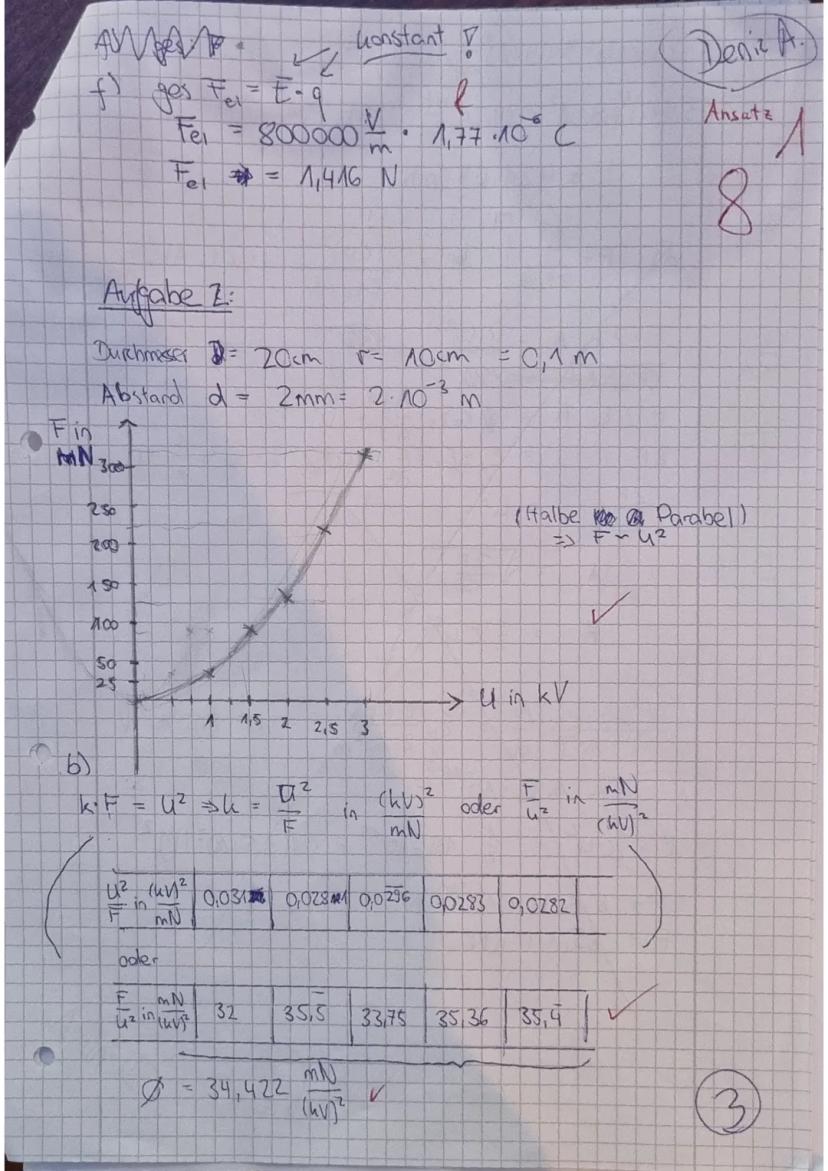 konstant !
Deniz A.
f) ges F_el = E · q
f
Ansatz 1
F_el = 800000 V/m · 1,77 · 10⁻⁶ C
F_el = 1,416 N
8
Aufgabe 2:
Durchmesser D = 20cm r = 10cm = 0,1 m
Abstand d = 2mm = 2·10⁻³ m
F in
mN
300
250
200
150
100
50
25
(Halbe Parabel)
=> F ~ U²
✓
1 1,5 2 2,5 3
U in kV
b)
k·F = U² => k = U²/F in (kV)²/mN oder F/U² in mN/(kV)²
U²/F in (kV)²/mN | 0,031 | 0,028 | 0,0296 | 0,0283 | 0,0282
oder
F/U² in mN/(kV)² | 32 | 35,5̅ | 33,75 | 35,36 | 35,4̅ ✓
Ø = 34,422 mN/(kV)² ✓
3